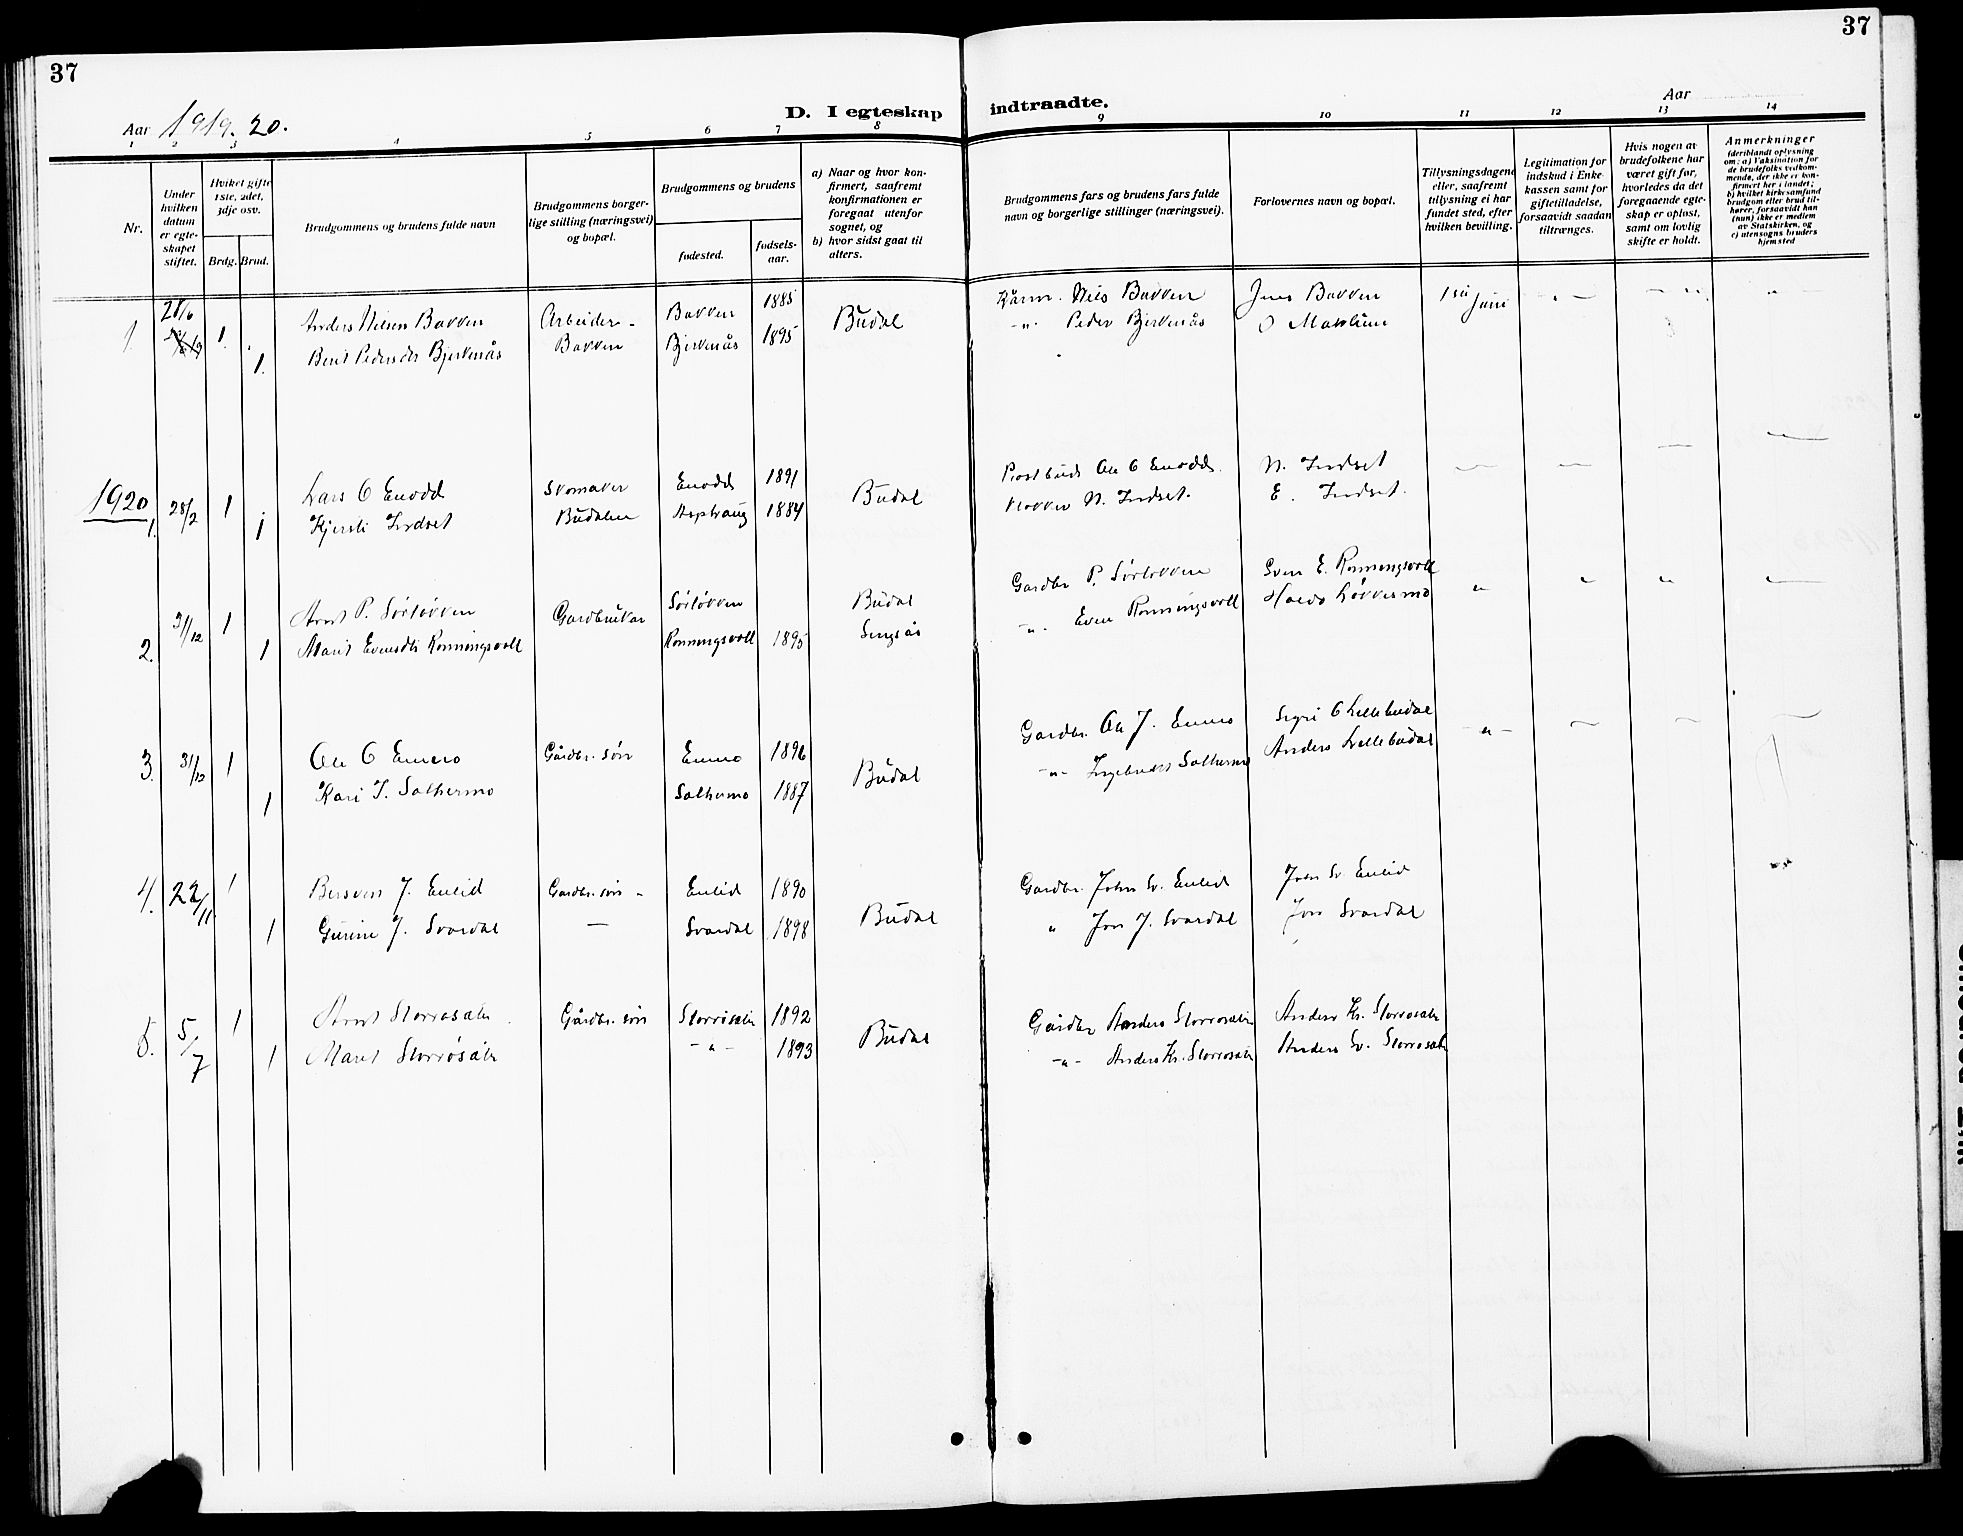 37
37
Aar 1919. 20.
D. I egteskap indtraadte.
Aar
1 2 3 4 5 6 7 8 9 10 11 12 13 14
Nr.
Under hvilken datum er egteskapet stiftet.
Hvilket gifte 1ste, 2det, 3dje osv.
Brdg. Brud.
Brudgommens og brudens fulde navn
Brudgommens borgerlige stilling (næringsvei) og bopæl.
Brudgommens og brudens
fødested.
fødselsaar.
a) Naar og hvor konfirmert, saafremt konfirmationen er foregaat utenfor sognet, og
b) hvor sidst gaat til alters.
Brudgommens fars og brudens fars fulde navn og borgerlige stillinger (næringsvei).
Forlovernes navn og bopæl.
Tillysningsdagene eller, saafremt tillysning ei har fundet sted, efter hvilken bevilling.
Legitimation for indskud i Enkekassen samt for giftetilladelse, forsaavidt saadan tiltrænges.
Hvis nogen av brudefolkene har været gift før, hvorledes da det foregaaende egteskap er opløst, samt om lovlig skifte er holdt.
Anmerkninger (deriblandt oplysning om: a) Vaksination for de brudefolks vedkommende, der ikke er konfirmert her i landet; b) hvilket kirkesamfund brudgom eller brud tilhører, forsaavidt han (hun) ikke er medlem av Statskirken, og c) utensogns bruders hjemsted
1. 28/6 1. Anders Nilsen Bakken Arbeider - Bakken 1885 Budal Nils Bakken Jens Bakken Juni
1. Berit Pedersdr Bjerkenås Bakken Bjerkenås 1895 -"- Peder Bjerkenås
1920
1. 28/2 1 Lars O Enodd Skomaker Enodd 1891 Budal Postbud Ole O Enodd. N. Indset
1 Kjersti Indset Budalen 1884 Klokker N. Indset. E. Indset.
2. 31/12 1 Arnt P. Sørløkken Gardbruker Sørløkken Budal Gardbr P. Sørløkken Even E. Rønningsvoll "
1 Marit Evensdtr Rønningsvoll Rønningsvoll 1895 Singsås -"- Even Rønningsvoll
3. 31/12 1 Ole O Enmo Gårdbr. søn Enmo 1896 Budal Gardbr. Ole J. Enmo Sigri O Lillebudal -"-
1 Kari I. Solhermo Solhermo 1887 -"- Solhermo Anders Lillebudal
4. 22/11 1 Bersven J. Enlid Gardbr. søn - Enlid 1890 Budal Gardbr. John Sv. Enlid John Sv. Enlid
1 Gurine J. Svardal — Svardal 1898 " Jon J. Svardal Jon Svardal
5. 5/7 1 Arnt Storrøsæter Gårdbr. søn Storrøsæter 1892 Budal Gårdbr Anders Storrøsæter Anders Kr. Storrøsæter
1 Marit Storrøsæter -"- 1893 -"- Anders Kr. Storrøsæter Anders Sv. Storrøsæter